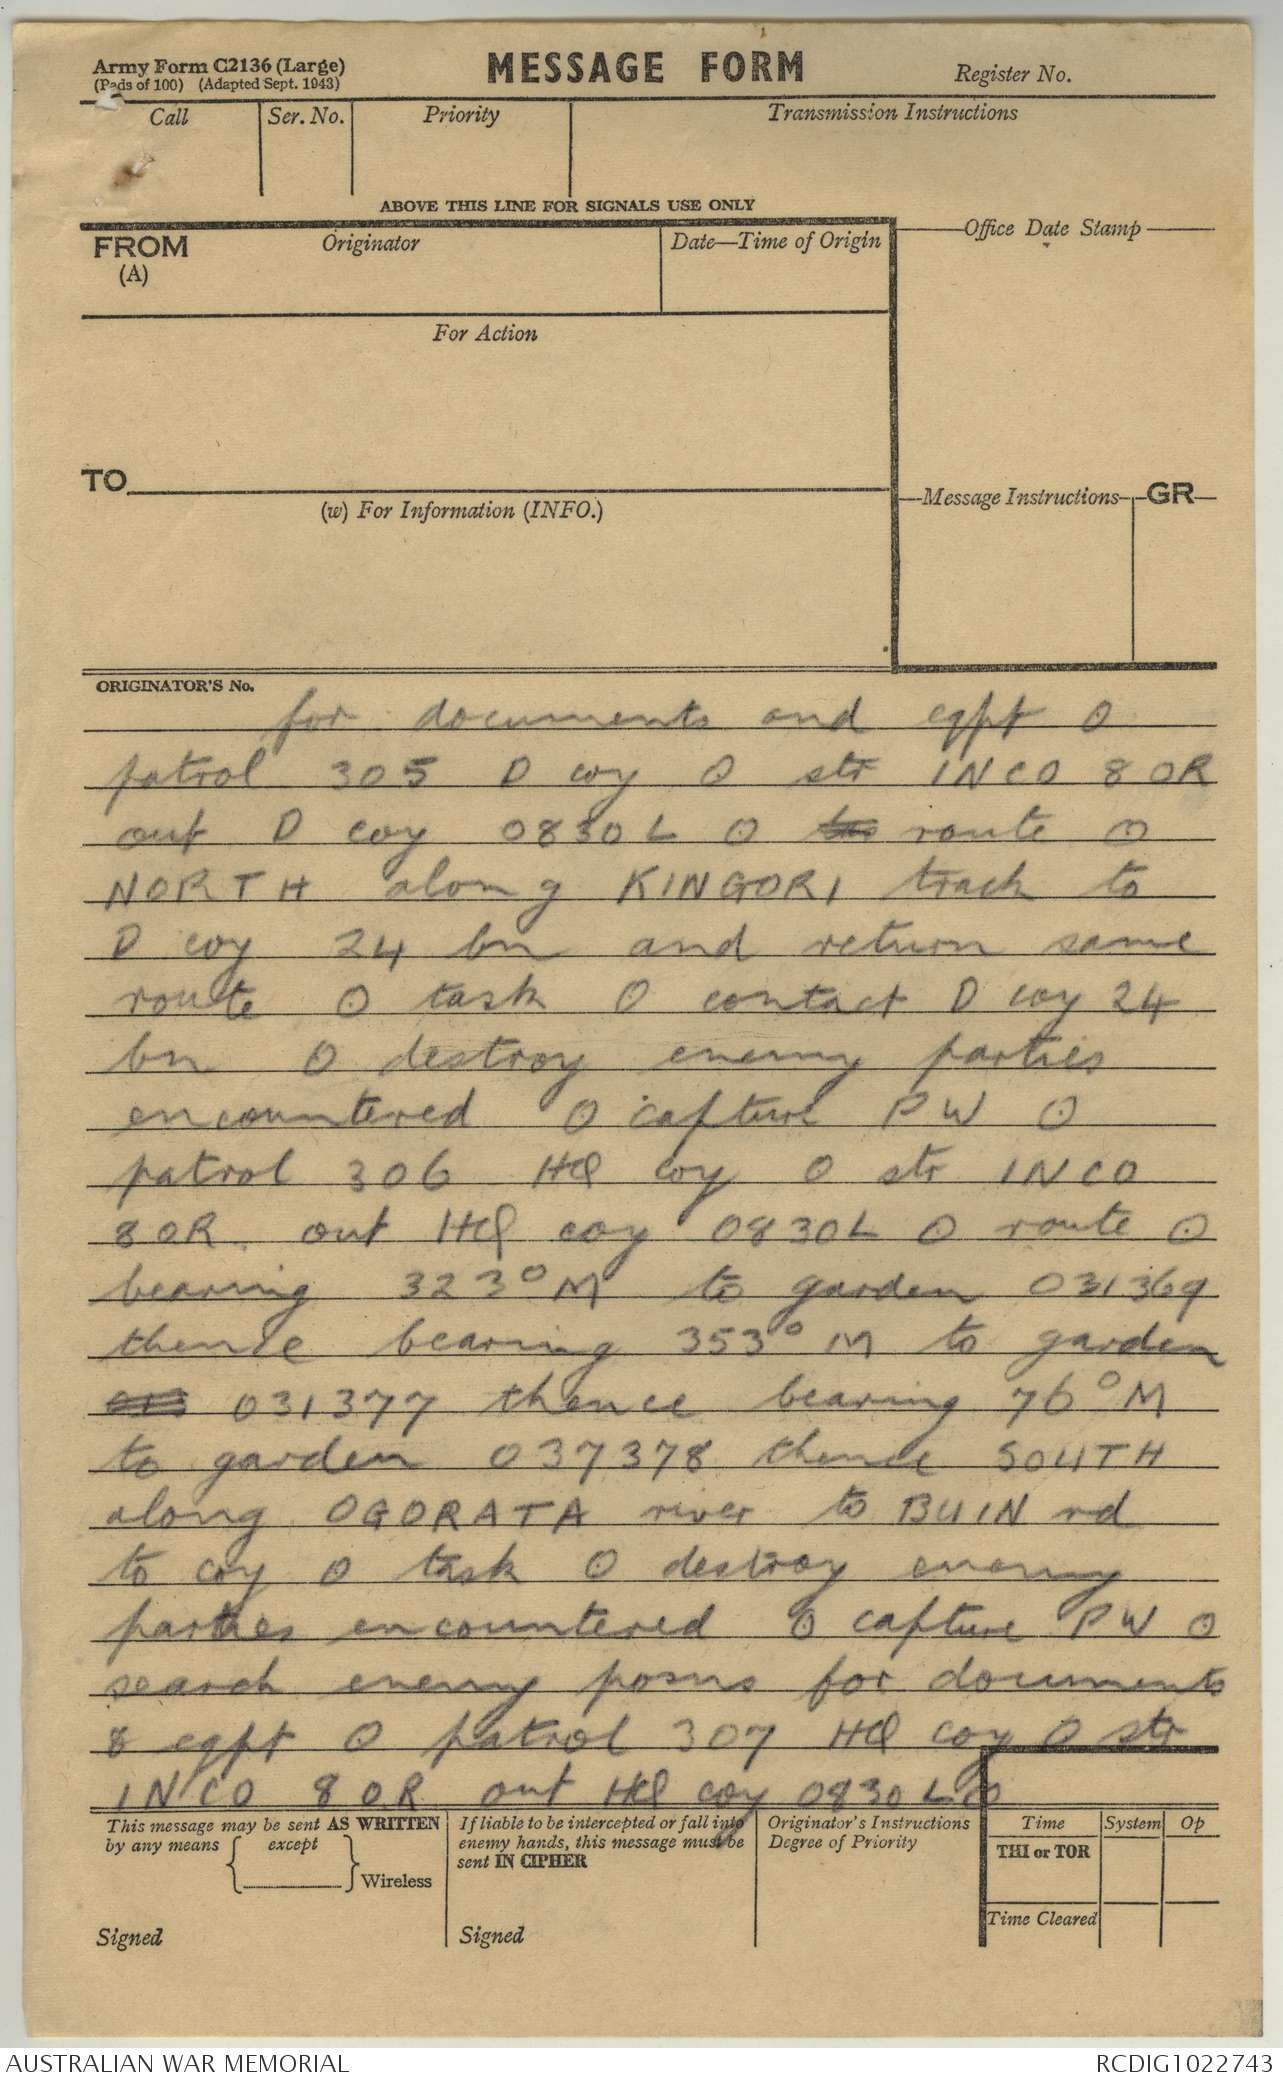 Army Form C2136 (Large)
(Pads of 100) (Adapted Sept. 1943)
MESSAGE FORM
Register No.
Call
Ser. No.
Priority
Transmission Instructions
ABOVE THIS LINE FOR SIGNALS USE ONLY
FROM
(A)
Originator
Date—Time of Origin
Office Date Stamp
For Action
TO
(w) For Information (INFO.)
Message Instructions
GR
ORIGINATOR'S No.
for documents and eqpt O
patrol 305 D coy O str 1NCO 8 OR
out D coy 0830L O route O
NORTH along KINGORI track to
D coy 24 bn and return same
route O task O contact D coy 24
bn O destroy enemy parties
encountered O capture PW O
patrol 306 HQ coy O str 1NCO
8 OR. out HQ coy 0830L O route O
bearing 323° M to garden 031369
thence bearing 353° M to garden
031377 thence bearing 76° M
to garden 037378 thence SOUTH
along OGORATA river to BUIN rd
to coy O task O destroy enemy
parties encountered O capture PW O
search enemy posns for documents
& eqpt O patrol 307 HQ coy O str
1NCO 8 OR out HQ coy 0830L O
This message may be sent AS WRITTEN
by any means except
Wireless
Signed
If liable to be intercepted or fall into
enemy hands, this message must be
sent IN CIPHER
Signed
Originator's Instructions
Degree of Priority
Time
System
Op
THI or TOR
Time Cleared
AUSTRALIAN WAR MEMORIAL
RCDIG1022743